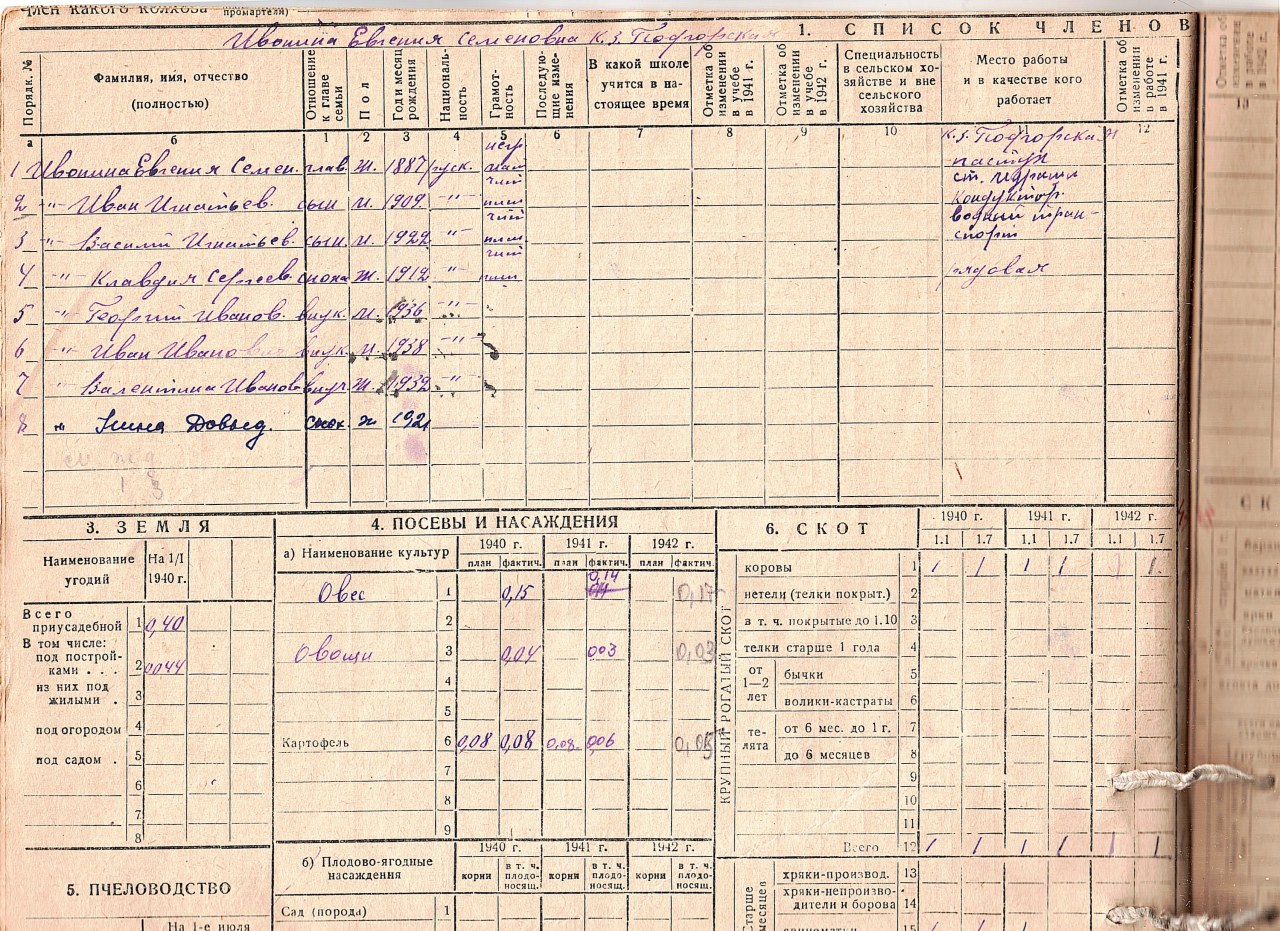 член какого колхоза промартели)
Ивонина Евгения Семеновна к.з. Подгорская
1. СПИСОК ЧЛЕНОВ
Порядк. № Фамилия, имя, отчество (полностью) Отношение к главе семьи Пол Год и месяц рождения Националь- ность Грамот- ность Последую- щие изме- нения В какой школе учится в на- стоящее время Отметка об изменении в учебе в 1941 г. Отметка об изменении в учебе в 1942 г. Специальность в сельском хо- зяйстве и вне сельского хозяйства Место работы и в качестве кого работает Отметка об изменении в работе в 1941 г.
а б 1 2 3 4 5 6 7 8 9 10 12
к.з. Подгорская
1 Ивонина Евгения Семен. глав. ж. 1887 руск. пастух
2 -"- Иван Игнатьев. сын м. 1909. -"- Кондуктор
3 -"- Василий Игнатьев. сын. м. 1922 -"- водный тран-
спорт
4 -"- Клавдия Сергеев. сноха ж. 1912 -"- рядовая
5 -"- Георгий Иванов. внук. м. 1936 -"-
6 -"- Иван Иванович внук. м. 1938 -"-
7 " Валентина Иванов внуч. ж. 1932 -"-
8 " Нина Довыд. снох. ж 1921
3. ЗЕМЛЯ
Наименование угодий На 1/I 1940 г.
Всего приусадебной 1 0,40
В том числе:
под построй- ками . . . 2 0044
из них под жилыми . 3
под огородом 4
под садом . 5
6
7
8
5. ПЧЕЛОВОДСТВО
На 1-е июля
4. ПОСЕВЫ И НАСАЖДЕНИЯ
а) Наименование культур 1940 г. 1941 г. 1942 г.
план фактич. план фактич. план фактич.
0,14
Овес 1 0,15 0,17
2
Овощи 3 0,04 003 0,03
4
5
Картофель 6 0,08 0,08 0,08 006 0,05
7
8
9
б) Плодово-ягодные насаждения 1940 г. 1941 г. 1942 г.
корни в т. ч. плодо- носящ. корни в т. ч. плодо- носящ. корни в т. ч. плодо- носящ.
Сад (порода) 1
6. СКОТ
1940 г. 1941 г. 1942 г.
1.1 1.7 1.1 1.7 1.1 1.7
КРУПНЫЙ РОГАТЫЙ СКОТ
коровы 1 1 1 1 1 1
нетели (телки покрыт.) 2
в т. ч. покрытые до 1.10 3
телки старше 1 года 4
от 1—2 лет
бычки 5
волики-кастраты 6
те- лята
от 6 мес. до 1 г. 7
до 6 месяцев 8
9
10
11
Всего 12 1 1 1 1 1 1
Старше месяцев
хряки-производ. 13
хряки-непроизво- дители и борова 14
свиноматки 15
10
СК